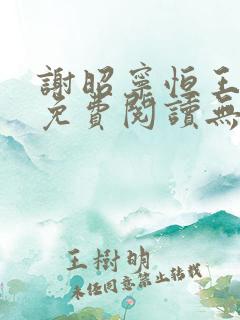 謝昭寧恒王
免費閱讀無
王樹明
未經同意禁止轉載